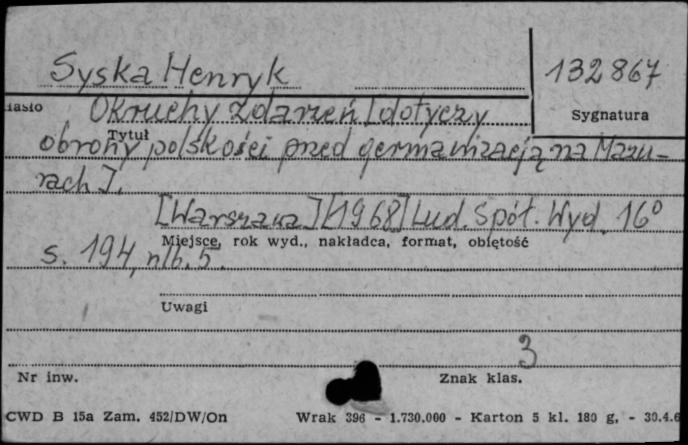 Syska Henryk
132867
iasło
Sygnatura
Okruchy zdarzeń [dotyczy
Tytuł
obrony polskości przed germanizacją na Mazu-
rach].
[Warszawa] [1968] Lud. Spół. Wyd. 16°
Miejsce, rok wyd., nakładca, format, objętość
s. 194, nlb. 5.
Uwagi
3
Nr inw.
Znak klas.
CWD B 15a Zam. 452/DW/On
Wrak 396 - 1.730.000 - Karton 5 kl. 180 g. - 30.4.6